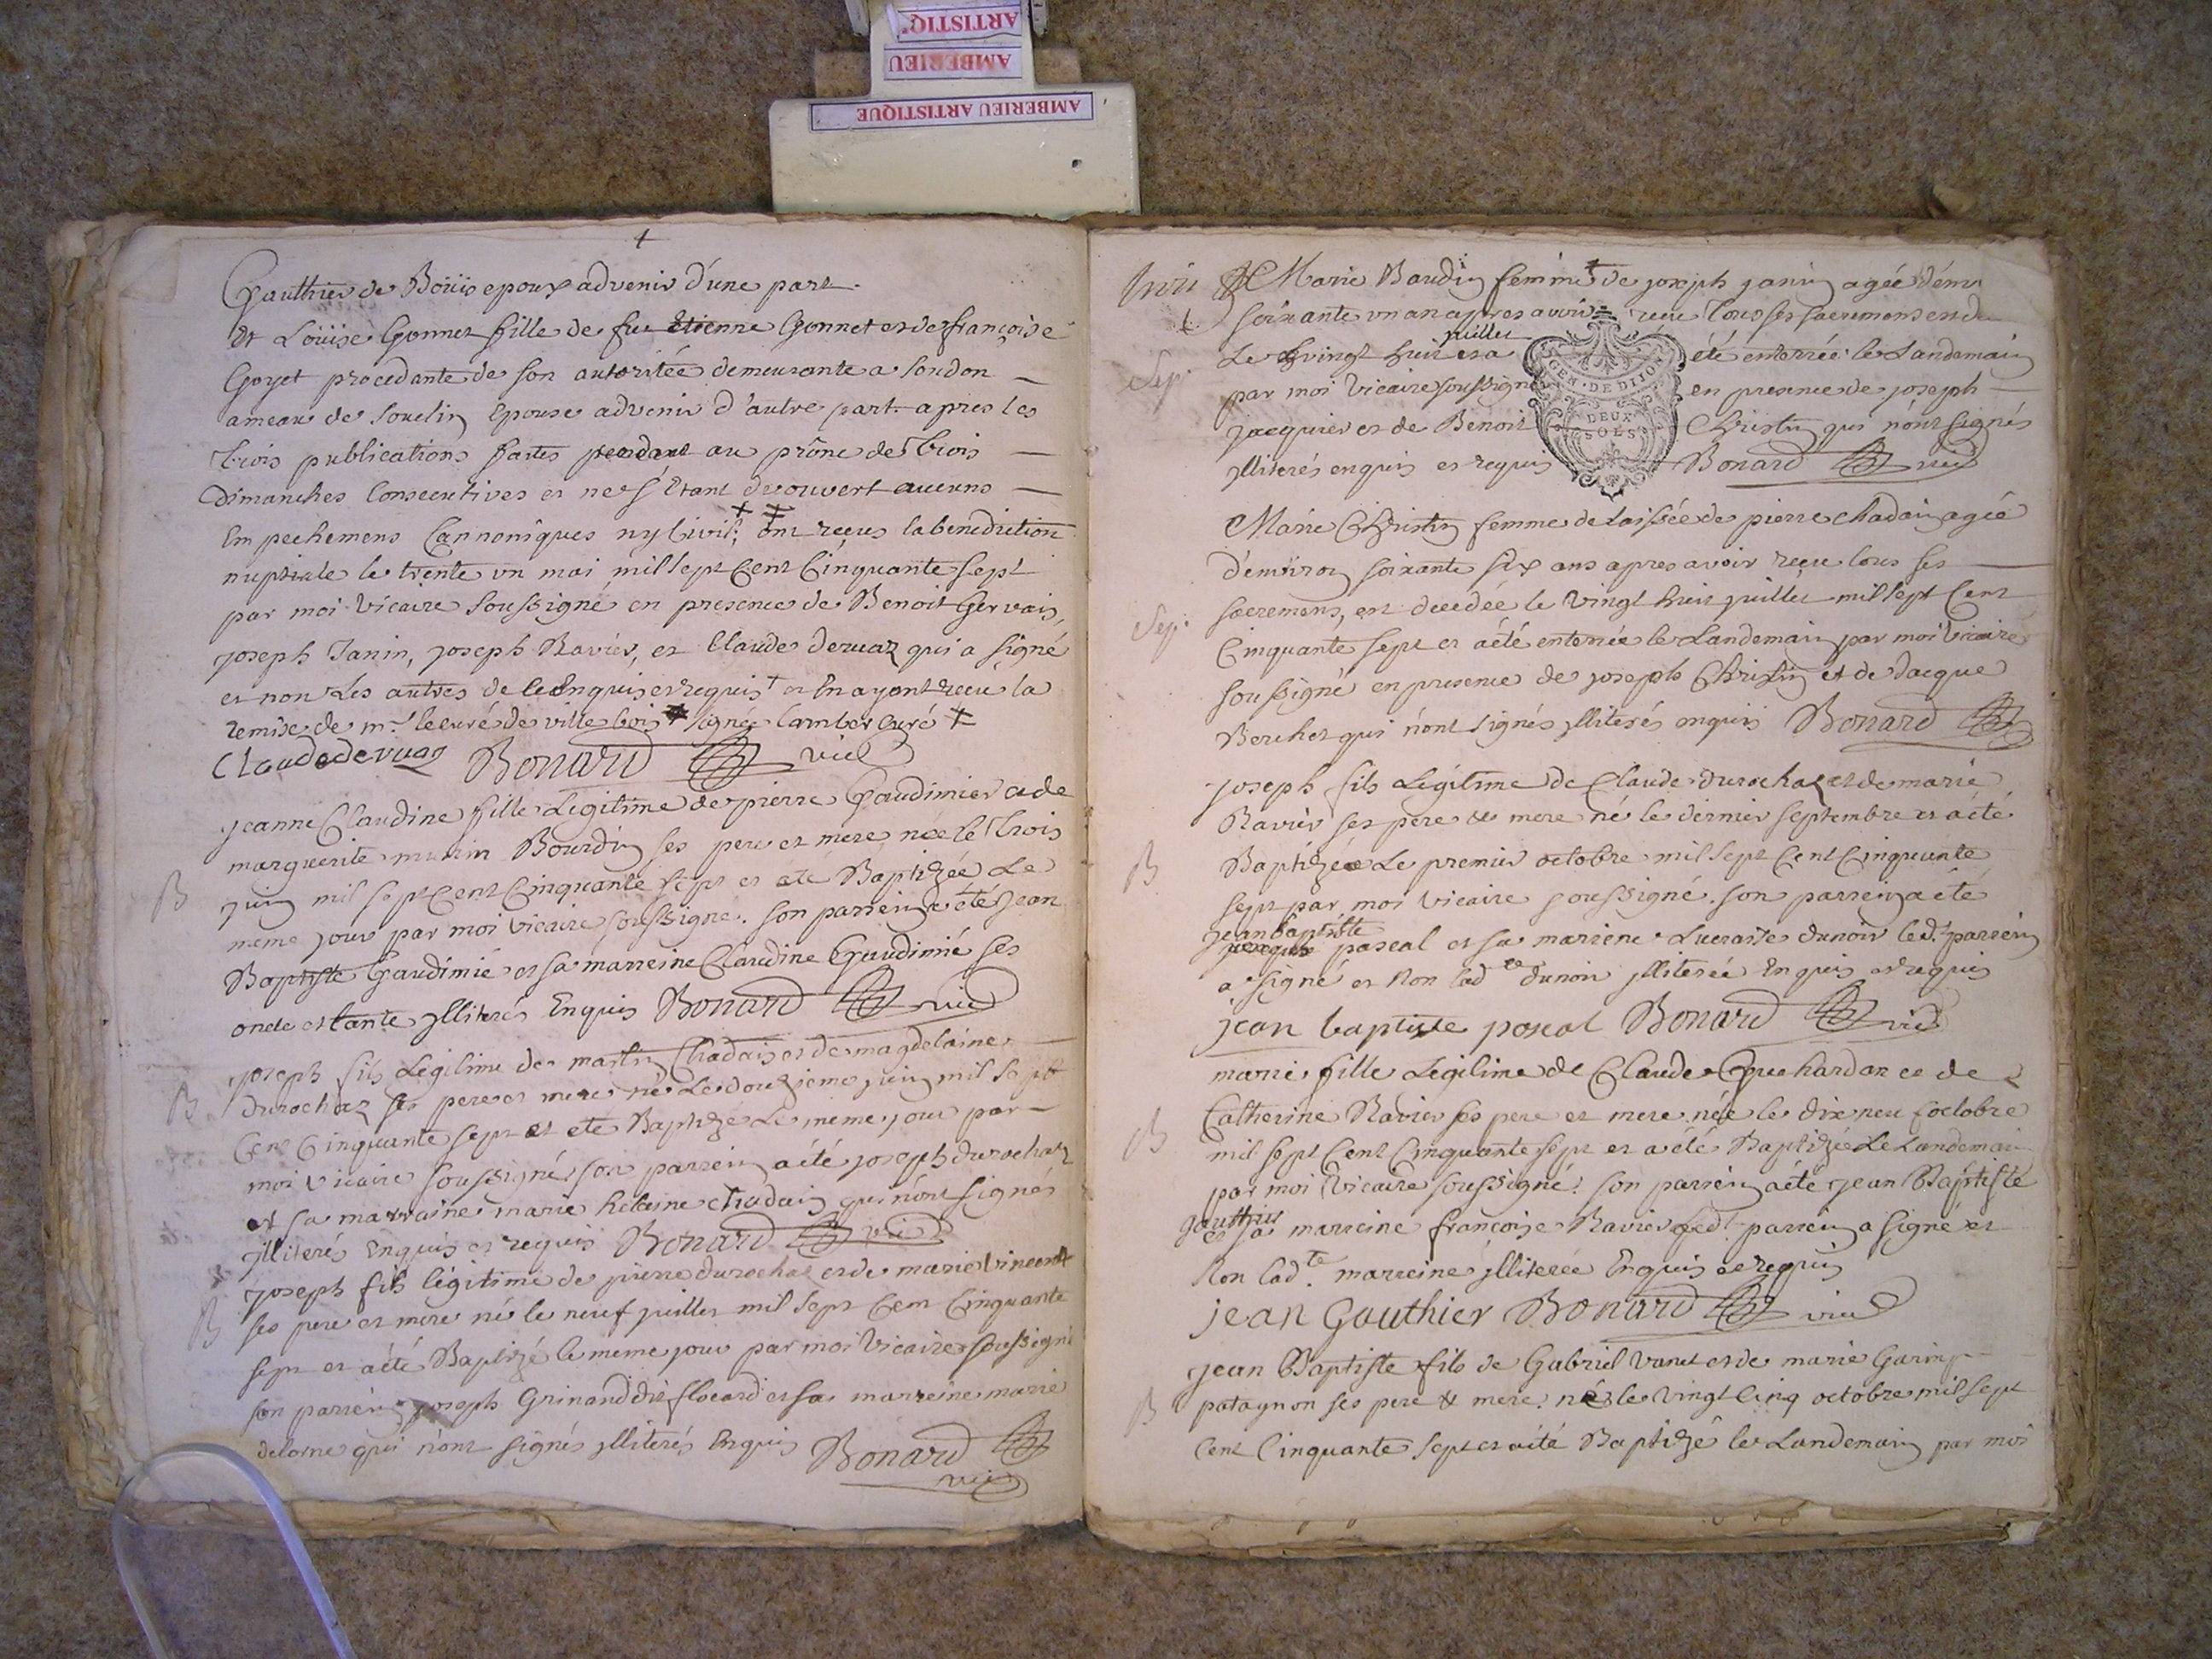 ARTISTIQ'
AMBERIEU
AMBERIEU ARTISTIQUE
Gauthier de Boüis epoux advenir d'une part.
Et Loüise Gonnet fille de feu Etienne Gonnet et de françoise
Goyet procedante de son autoritée demeurante a Soudon
ameau de Souclin Epouse advenir d'autre part. apres les
trois publications faites pendant au prône de trois
dimanches Consecutives et ne s'Etant decouvert aucuns
Empechemens Cannoniques ny Civil; ont reçus la benediction
nuptiale le trente un mai mil sept Cent Cinquante sept
par moi Vicaire soussigné en presence de Benoit Gervais,
joseph Janin, joseph Ravier, et Claude devuaz qui a signé
et non les autres de ce Enquis et requis et En ayant recu la
remise de mr. le curé de ville bois signée Lamber Curé
Claude devuaz Bonard vic
jeanne Claudine fille Legitime de pierre Gaudimier et de
marguerite Bourdin ses pere et mere née le trois
juin mil sept Cent Cinquante sept et até Baptizée Le
meme jour par moi Vicaire soussigné. son parrein a été jean
B
Baptiste Gaudimié et sa marreine Claudine Gaudimié ses
oncle et tante jlliterés Enquis Bonard vic
joseph fils Legitime de martin Chadain et de magdelaine
durochaz ses pere et mere né Le douzieme juin mil sept
B
Cent Cinquante sept et eté Baptizé Le meme jour par
moi Vicaire soussigné son parrein a été joseph durochaz
et sa marraine marie helaine Chadain qui n'ont signés
jlliterés Enquis et requis Bonard vic
joseph fils légitime de pierre durochaz et de marie Vincent
ses pere et mere né le neuf juillet mil sept Cent Cinquante
B
sept et a été Baptizé le meme jour par moi Vicaire soussigné
son parrein joseph Grinand dit flocard et sa marreine marie
delorme qui n'ont signés jlliterés Enquis Bonard
vic
Marie Baudin femme de joseph janin agée d'env
soixante un an apres avoir recu tous ses sacremens est de
juillet
Le vingt huit et a été enterrée le Landemain
Sep.
par moi Vicaire soussigné en presence de joseph
jacquier et de Benoit Christin qui n'ont signés
jlliterés enquis et requis Bonard vic
GEN. DE DIJON
DEUX
SOLS
Marie Christin femme delaissée de pierre chadain agée
d'environ soixante six ans apres avoir reçu tous ses
sacremens, est decedée le Vingt huit juillet mil sept Cent
Sep.
Cinquante sept et a été enterrée le Landemain par moi Vicaire
soussigné en presence de joseph Christin et de Jacque
Berchet qui n'ont signés jlliterés enquis Bonard
joseph fils Legitime de Claude durochaz et de marie
Ravier ses pere & mere né le dernier septembre et a été
B
Baptizée Le premier octobre mil sept Cent Cinquante
sept par moi Vicaire soussigné. son parrein a été
jean baptiste
pascal et sa marreine Lucraisse dunoir led. parrein
a signé et Non lad.te dunoir jlliterée Enquis et requis
jean baptiste poscal Bonard vic
marie fille Legitime de Claude Guchardan et de
Catherine Ravier ses pere et mere née le dix neuf octobre
B
mil sept Cent Cinquante sept et a été Baptizée Le Landemain
par moi Vicaire soussigné. son parrein a été jean Baptiste
gauthier
et sa marreine françoise Ravier led.t parrein a signé et
Non lad.te marreine jlliterée Enquis et requis
jean Gauthier Bonard vic
jean Baptiste fils de Gabriel Vanet et de marie
patagnon ses pere & mere né le Vingt Cinq octobre mil sept
B
Cent Cinquante sept et a été Baptizé le Landemain par moi